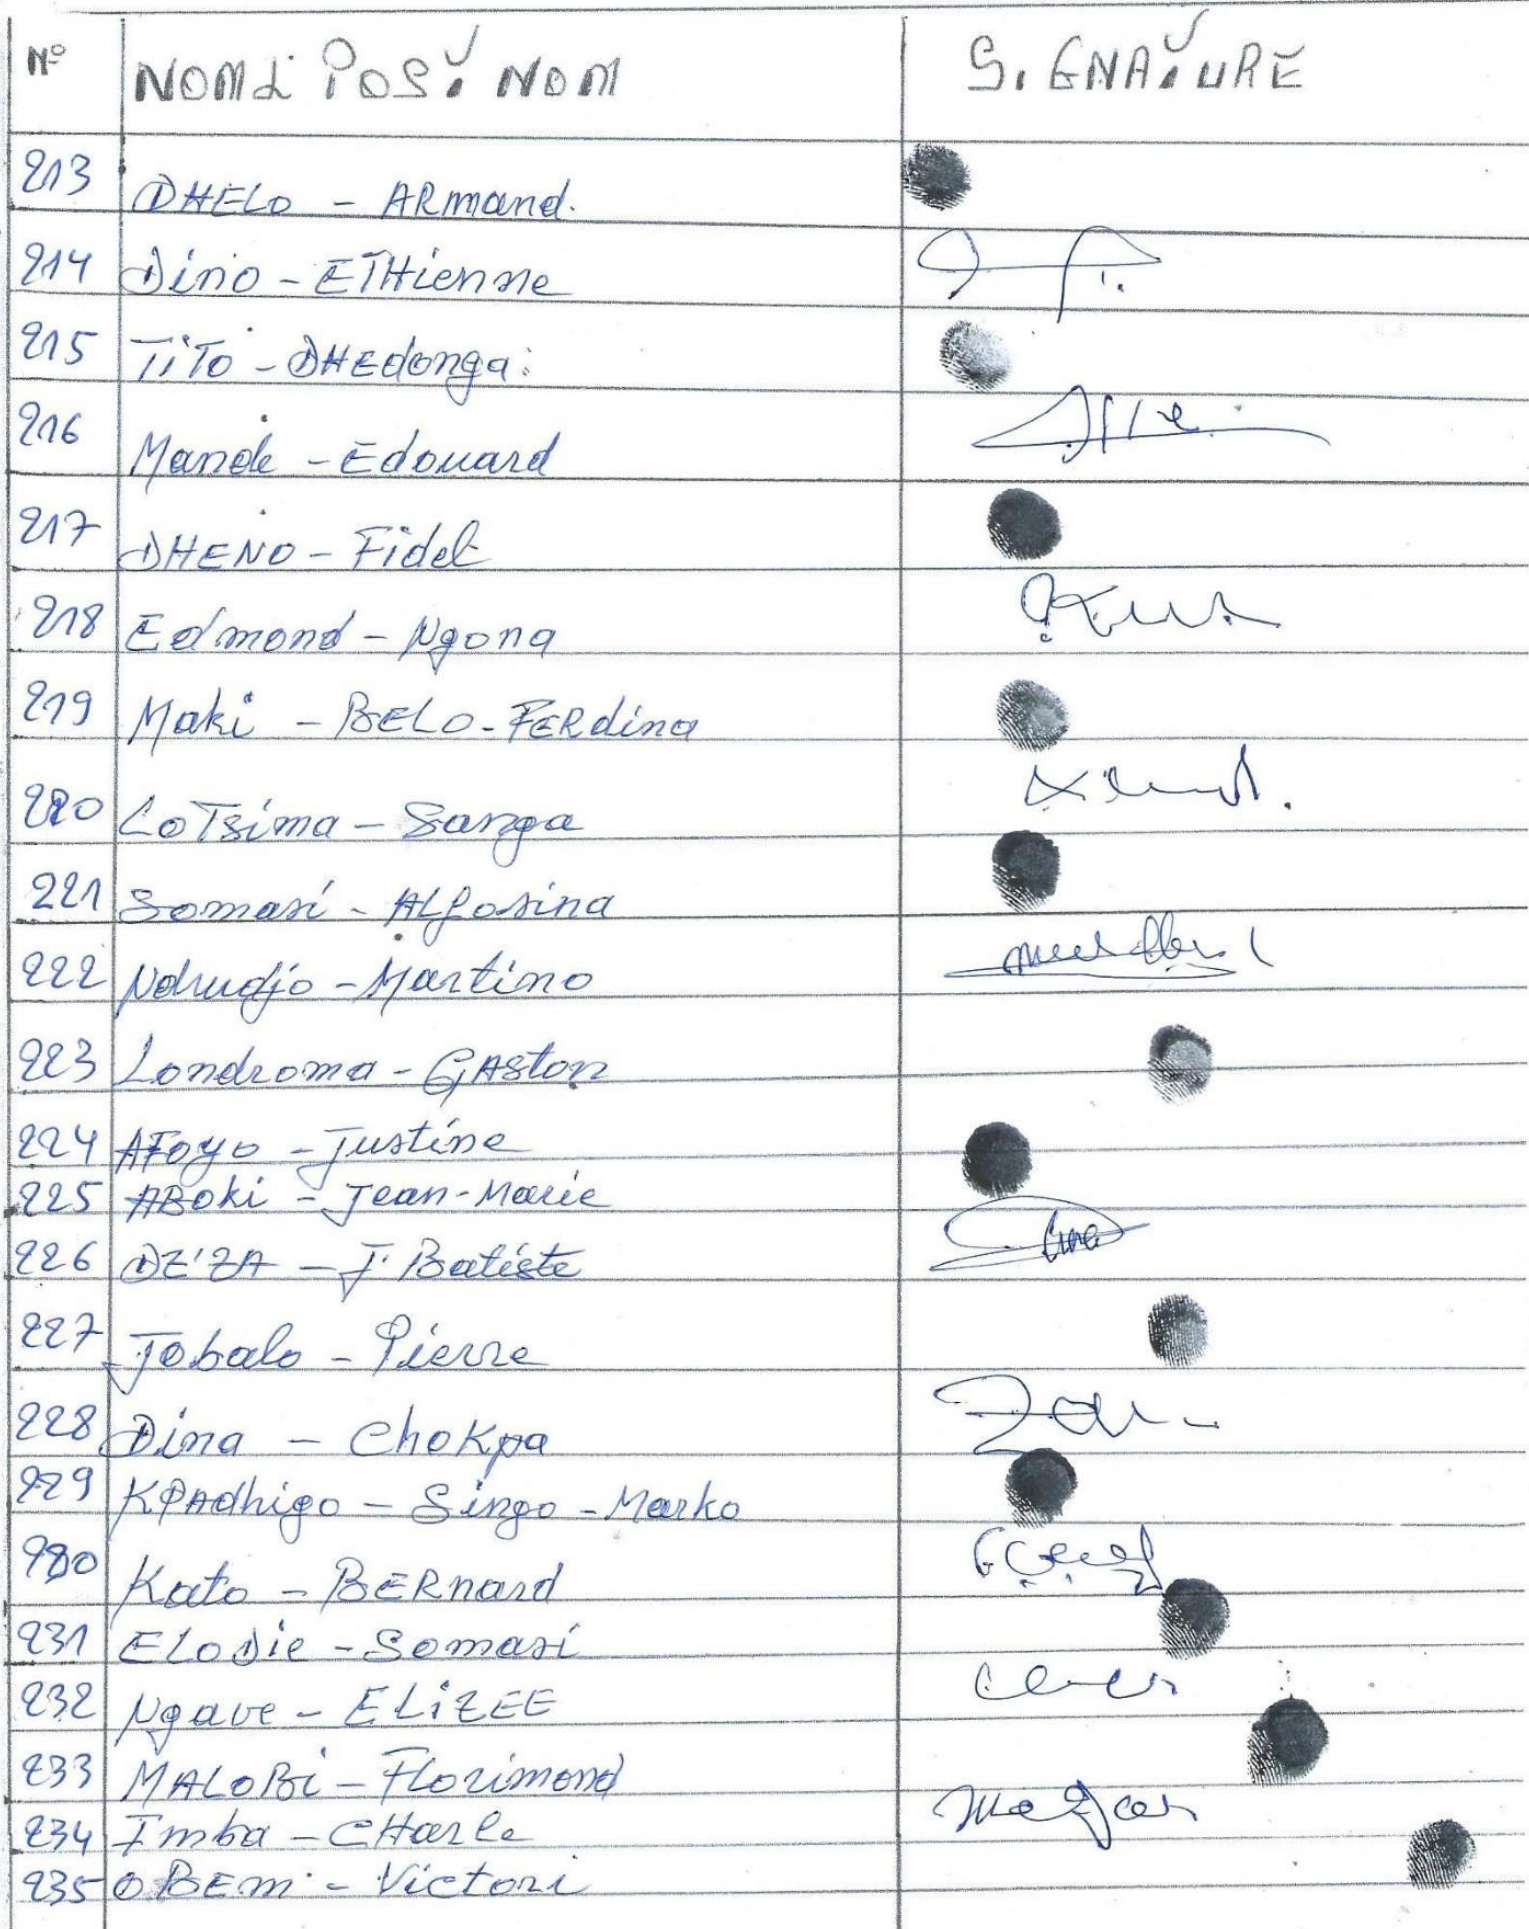 N° NOM & POST NOM SIGNATURE
213 DHELO - ARmand.
214 Dino - ETHienne
215 TiTo - DHEdonga:
216 Mande - Edouard
217 DHENO - Fidel
218 Edmond - Ngona
219 Maki - BELO - FERdina
220 LoTsima - Sanga
221 Somasi - ALfosina
222 Ndrudjo - Martino
223 Londroma - GAston
224 AFoyo - Justine
225 ABoki - Jean-Marie
226 DZ'ZA - J. Batiste
227 Jobalo - Pierre
228 Dina - ChoKpa
229 KPAdhigo - Singo - Marko
230 Kato - BERnard
231 ELoDie - Somasi
232 Ngave - ELiZEE
233 MALOBi - FLorimond
234 Imba - CHarle
235 OBEMi - Victori